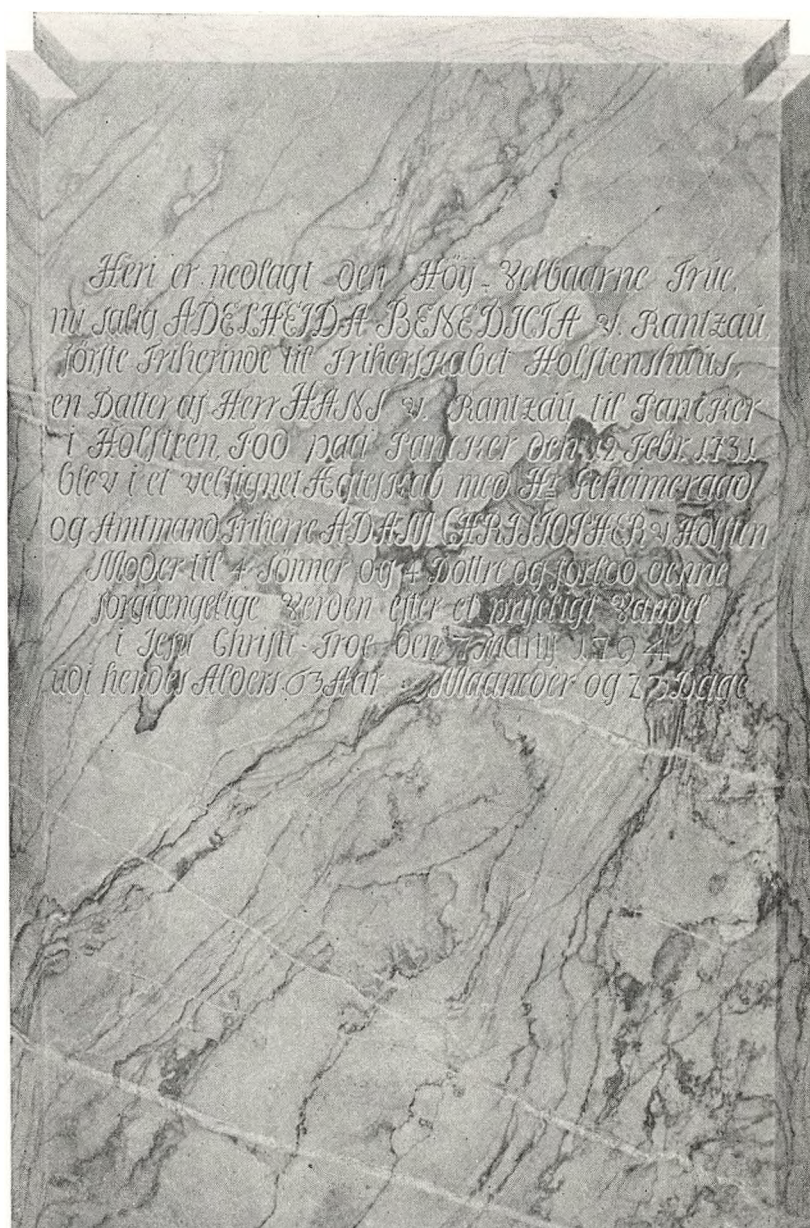 Heri er nedlagt den Höÿ-Velbaarne Frúe,
nu salig ADELHEIDA BENEDICTA v. Rantzaú,
förste Friherinde til Friherskabet Holstenshuús,
en Datter af Herr HANS v. Rantzaú til Pantker
i Holsteen, Föd paa Pantker den 12 Febr. 1731
blev i et velsignet Ægteskab med Hr Geheimeraad
og Amtmand Friherre ADAM CHRISTOPHER v. Holsten
Moder til 4 Sönner og 4 Döttre og forlod denne
forgiængelige Verden efter et priseligt Vandel
i Jesu Christi Troe den 7 Martij 1794
udi hendes Alders 63 Aar Maaneder og Dage